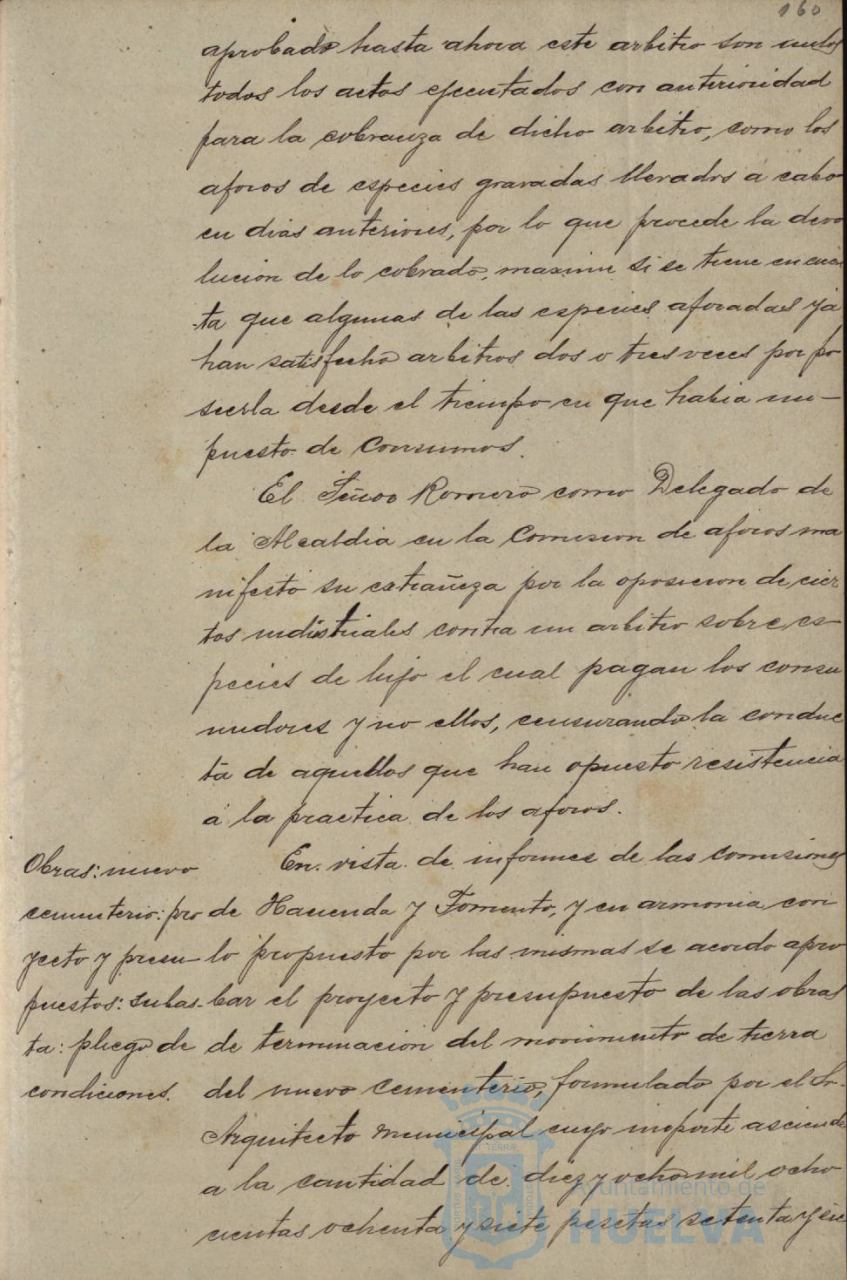 160
aprobado hasta ahora este arbitrio son nulos
todos los actos ejecutados con anterioridad
para la cobranza de dicho arbitrio, como los
aforos de especies gravadas llevados a cabo
en dias anteriores, por lo que procede la devo
lucion de lo cobrado, maxime si se tiene en cuen
ta que algunas de las especies aforadas ya
han satisfecho arbitrios dos o tres veces por po
seerla desde el tiempo en que habia im-
puesto de Consumos.
El Señor Romero como Delegado de
la Alcaldia en la Comision de aforos ma
nifestó su extrañeza por la oposicion de cier
tos industriales contra un arbitrio sobre es-
pecies de lujo el cual pagan los consu
midores y no ellos, censurando la conduc
ta de aquellos que han opuesto resistencia
á la practica de los aforos.
Obras: nuevo
cementerio: pro
yecto y presu-
puestos: subas-
ta: pliego de
condiciones.
En vista de informes de las comisiones
de Hacienda y Fomento, y en armonia con
lo propuesto por las mismas se acordo apro
bar el proyecto y presupuesto de las obras
de terminacion del movimiento de tierra
del nuevo cementerio, formulado por el Sr.
Arquitecto municipal cuyo importe asciende
a la cantidad de diez y ocho mil ocho
cientas ochenta y siete pesetas setenta y
Ayuntamiento de
HUELVA